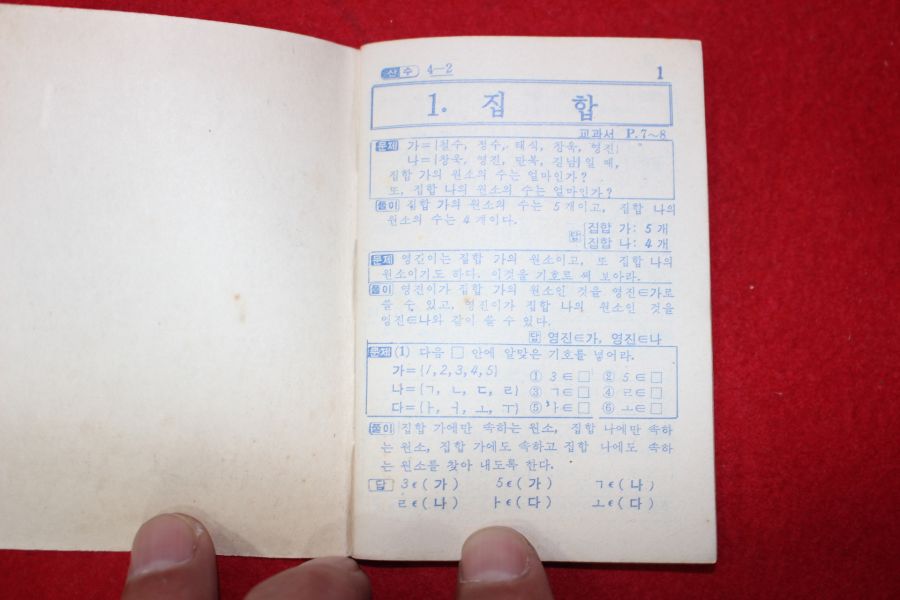 산수 4-2 1
1. 집 합
교과서 P.7~8
문제 가={철수, 정수, 태식, 창욱, 영진}
나={창욱, 영진, 만복, 길남}일 때,
집합 가의 원소의 수는 얼마인가?
또, 집합 나의 원소의 수는 얼마인가?
풀이 집합 가의 원소의 수는 5개이고, 집합 나의
원소의 수는 4개이다.
답 집합 가: 5개
집합 나: 4개
문제 영진이는 집합 가의 원소이고, 또 집합 나의
원소이기도 하다. 이것을 기호로 써 보아라.
풀이 영진이가 집합 가의 원소인 것을 영진∈가로
쓸 수 있고, 영진이가 집합 나의 원소인 것을
영진∈나와 같이 쓸 수 있다.
답 영진∈가, 영진∈나
문제 (1) 다음 □ 안에 알맞은 기호를 넣어라.
가={1,2,3,4,5} ① 3∈□ ② 5∈□
나={ㄱ, ㄴ, ㄷ, ㄹ} ③ ㄱ∈□ ④ ㄹ∈□
다={ㅏ, ㅓ, ㅗ, ㅜ} ⑤ ㅏ∈□ ⑥ ㅗ∈□
풀이 집합 가에만 속하는 원소, 집합 나에만 속하
는 원소, 집합 가에도 속하고 집합 나에도 속하
는 원소를 찾아 내도록 한다.
답 3∈(가) 5∈(가) ㄱ∈(나)
ㄹ∈(나) ㅏ∈(다) ㅗ∈(다)